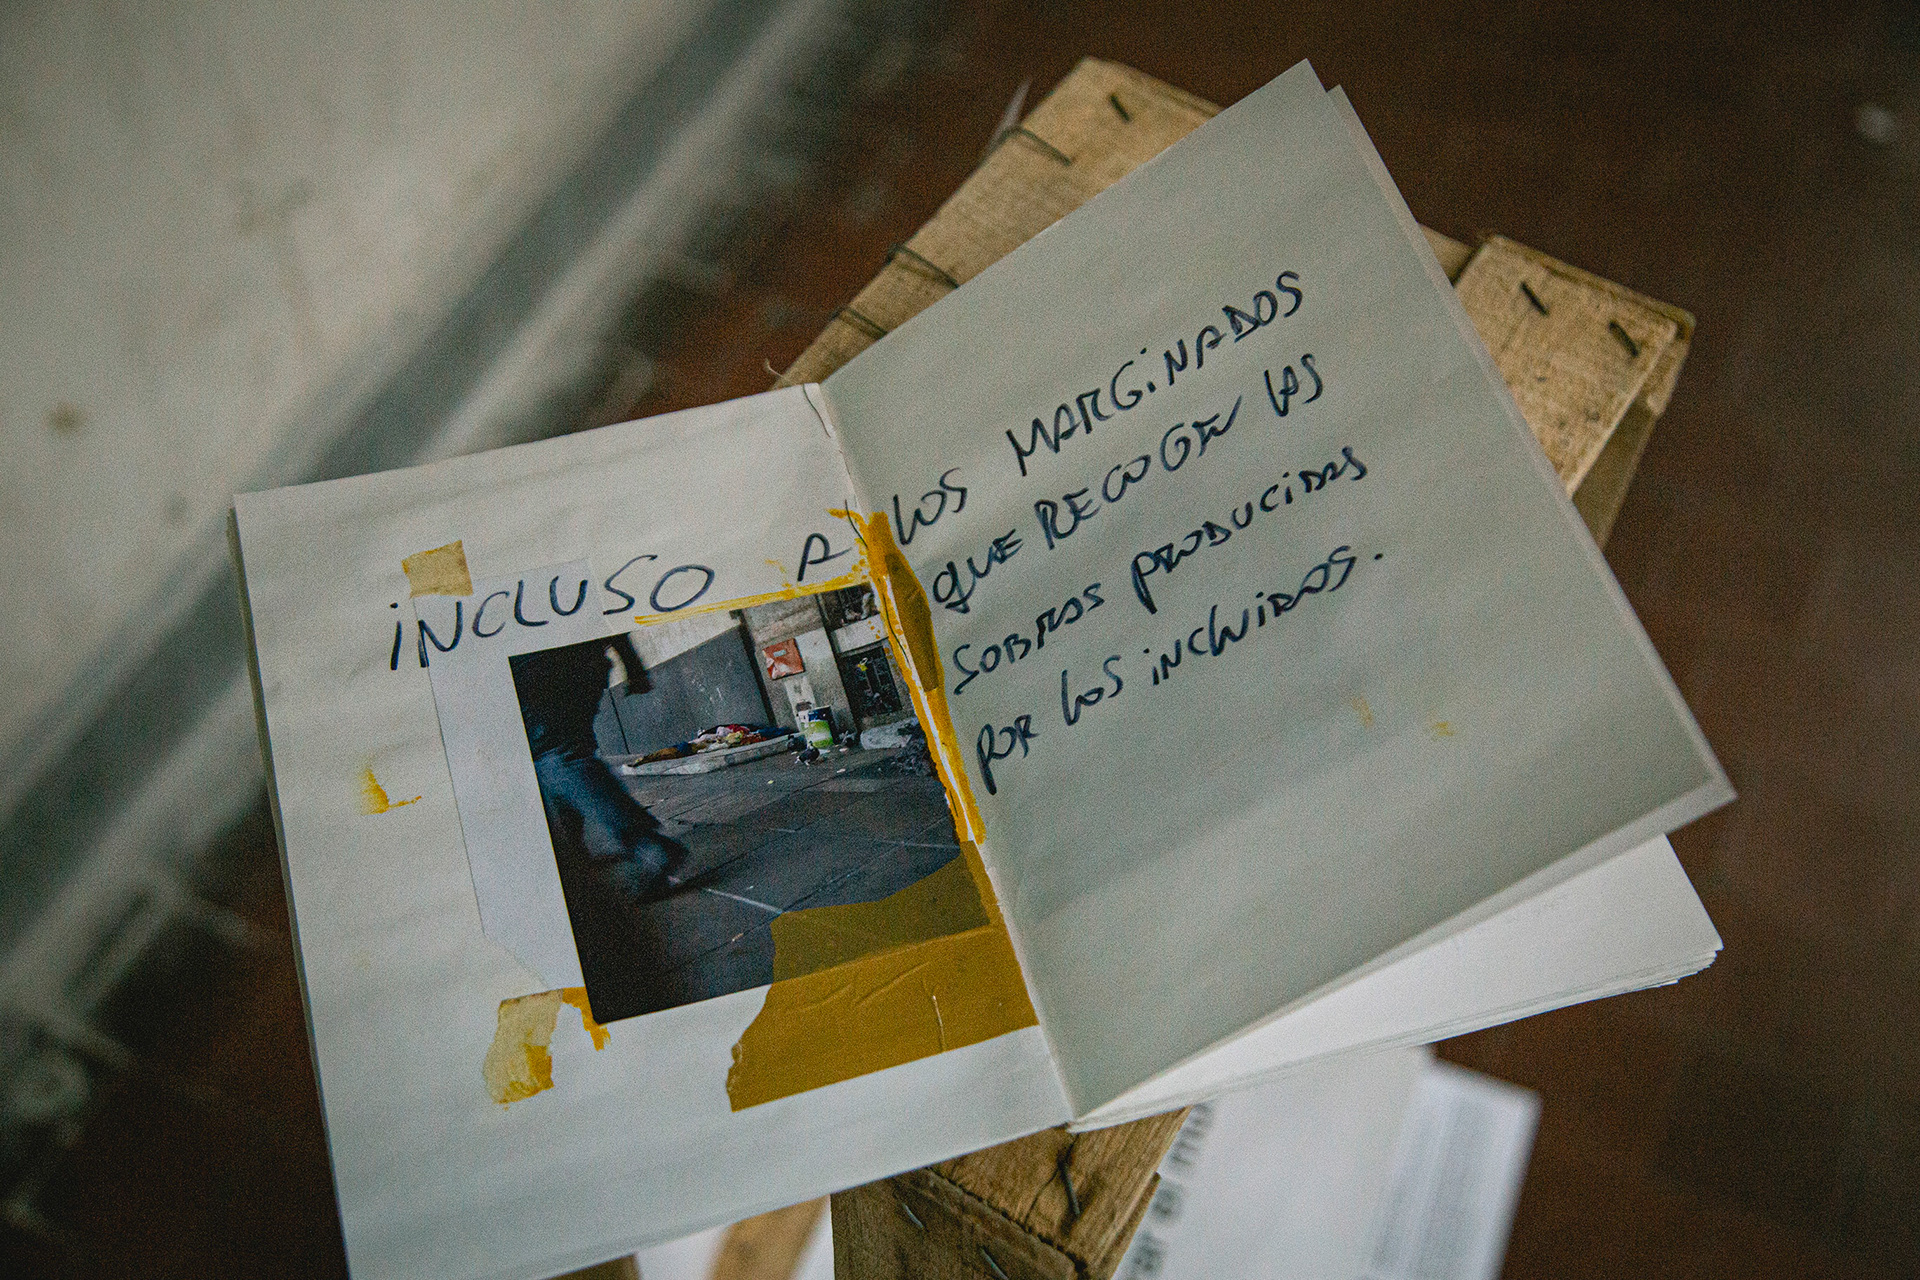 INCLUSO A LOS MARGINADOS
QUE RECOGEN LAS
SOBRAS PRODUCIDAS
POR LOS INCLUIDOS.